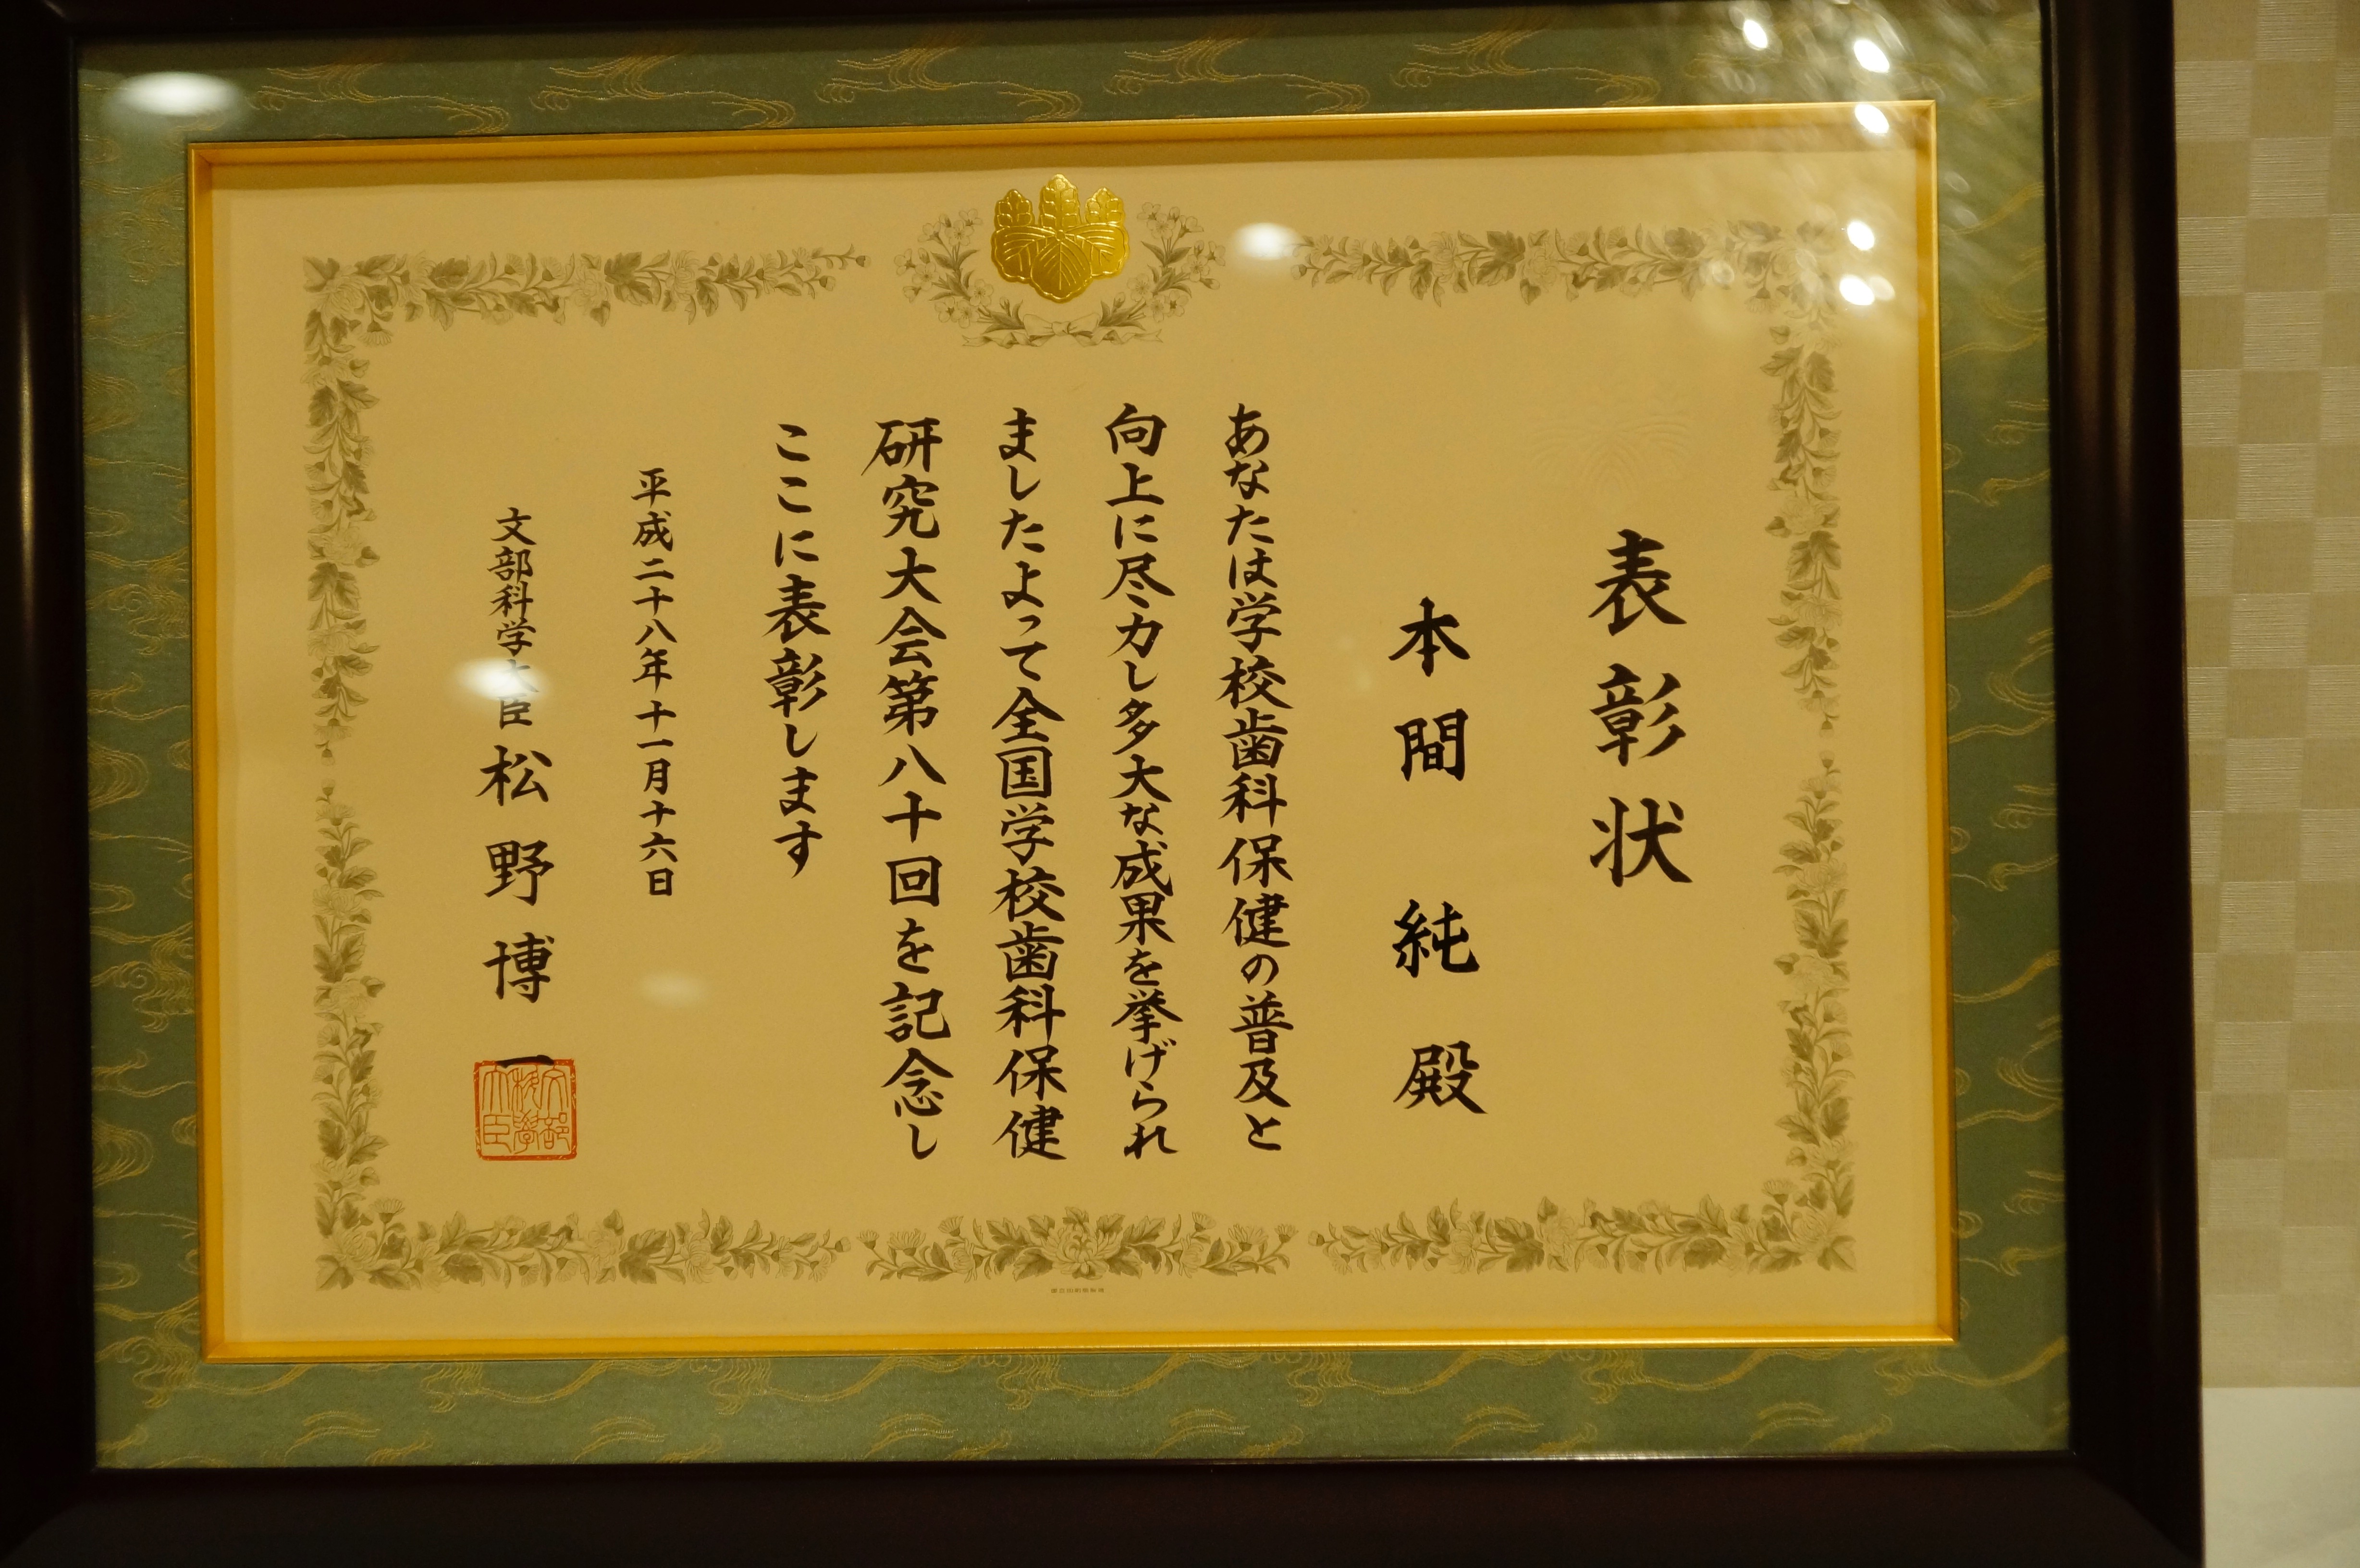 表彰状
本間 純 殿
あなたは学校歯科保健の普及と
向上に尽力し多大な成果を挙げられ
ましたよって全国学校歯科保健
研究大会第八十回を記念し
ここに表彰します
平成二十八年十一月十六日
文部科学大臣 松野博一
文部科学大臣